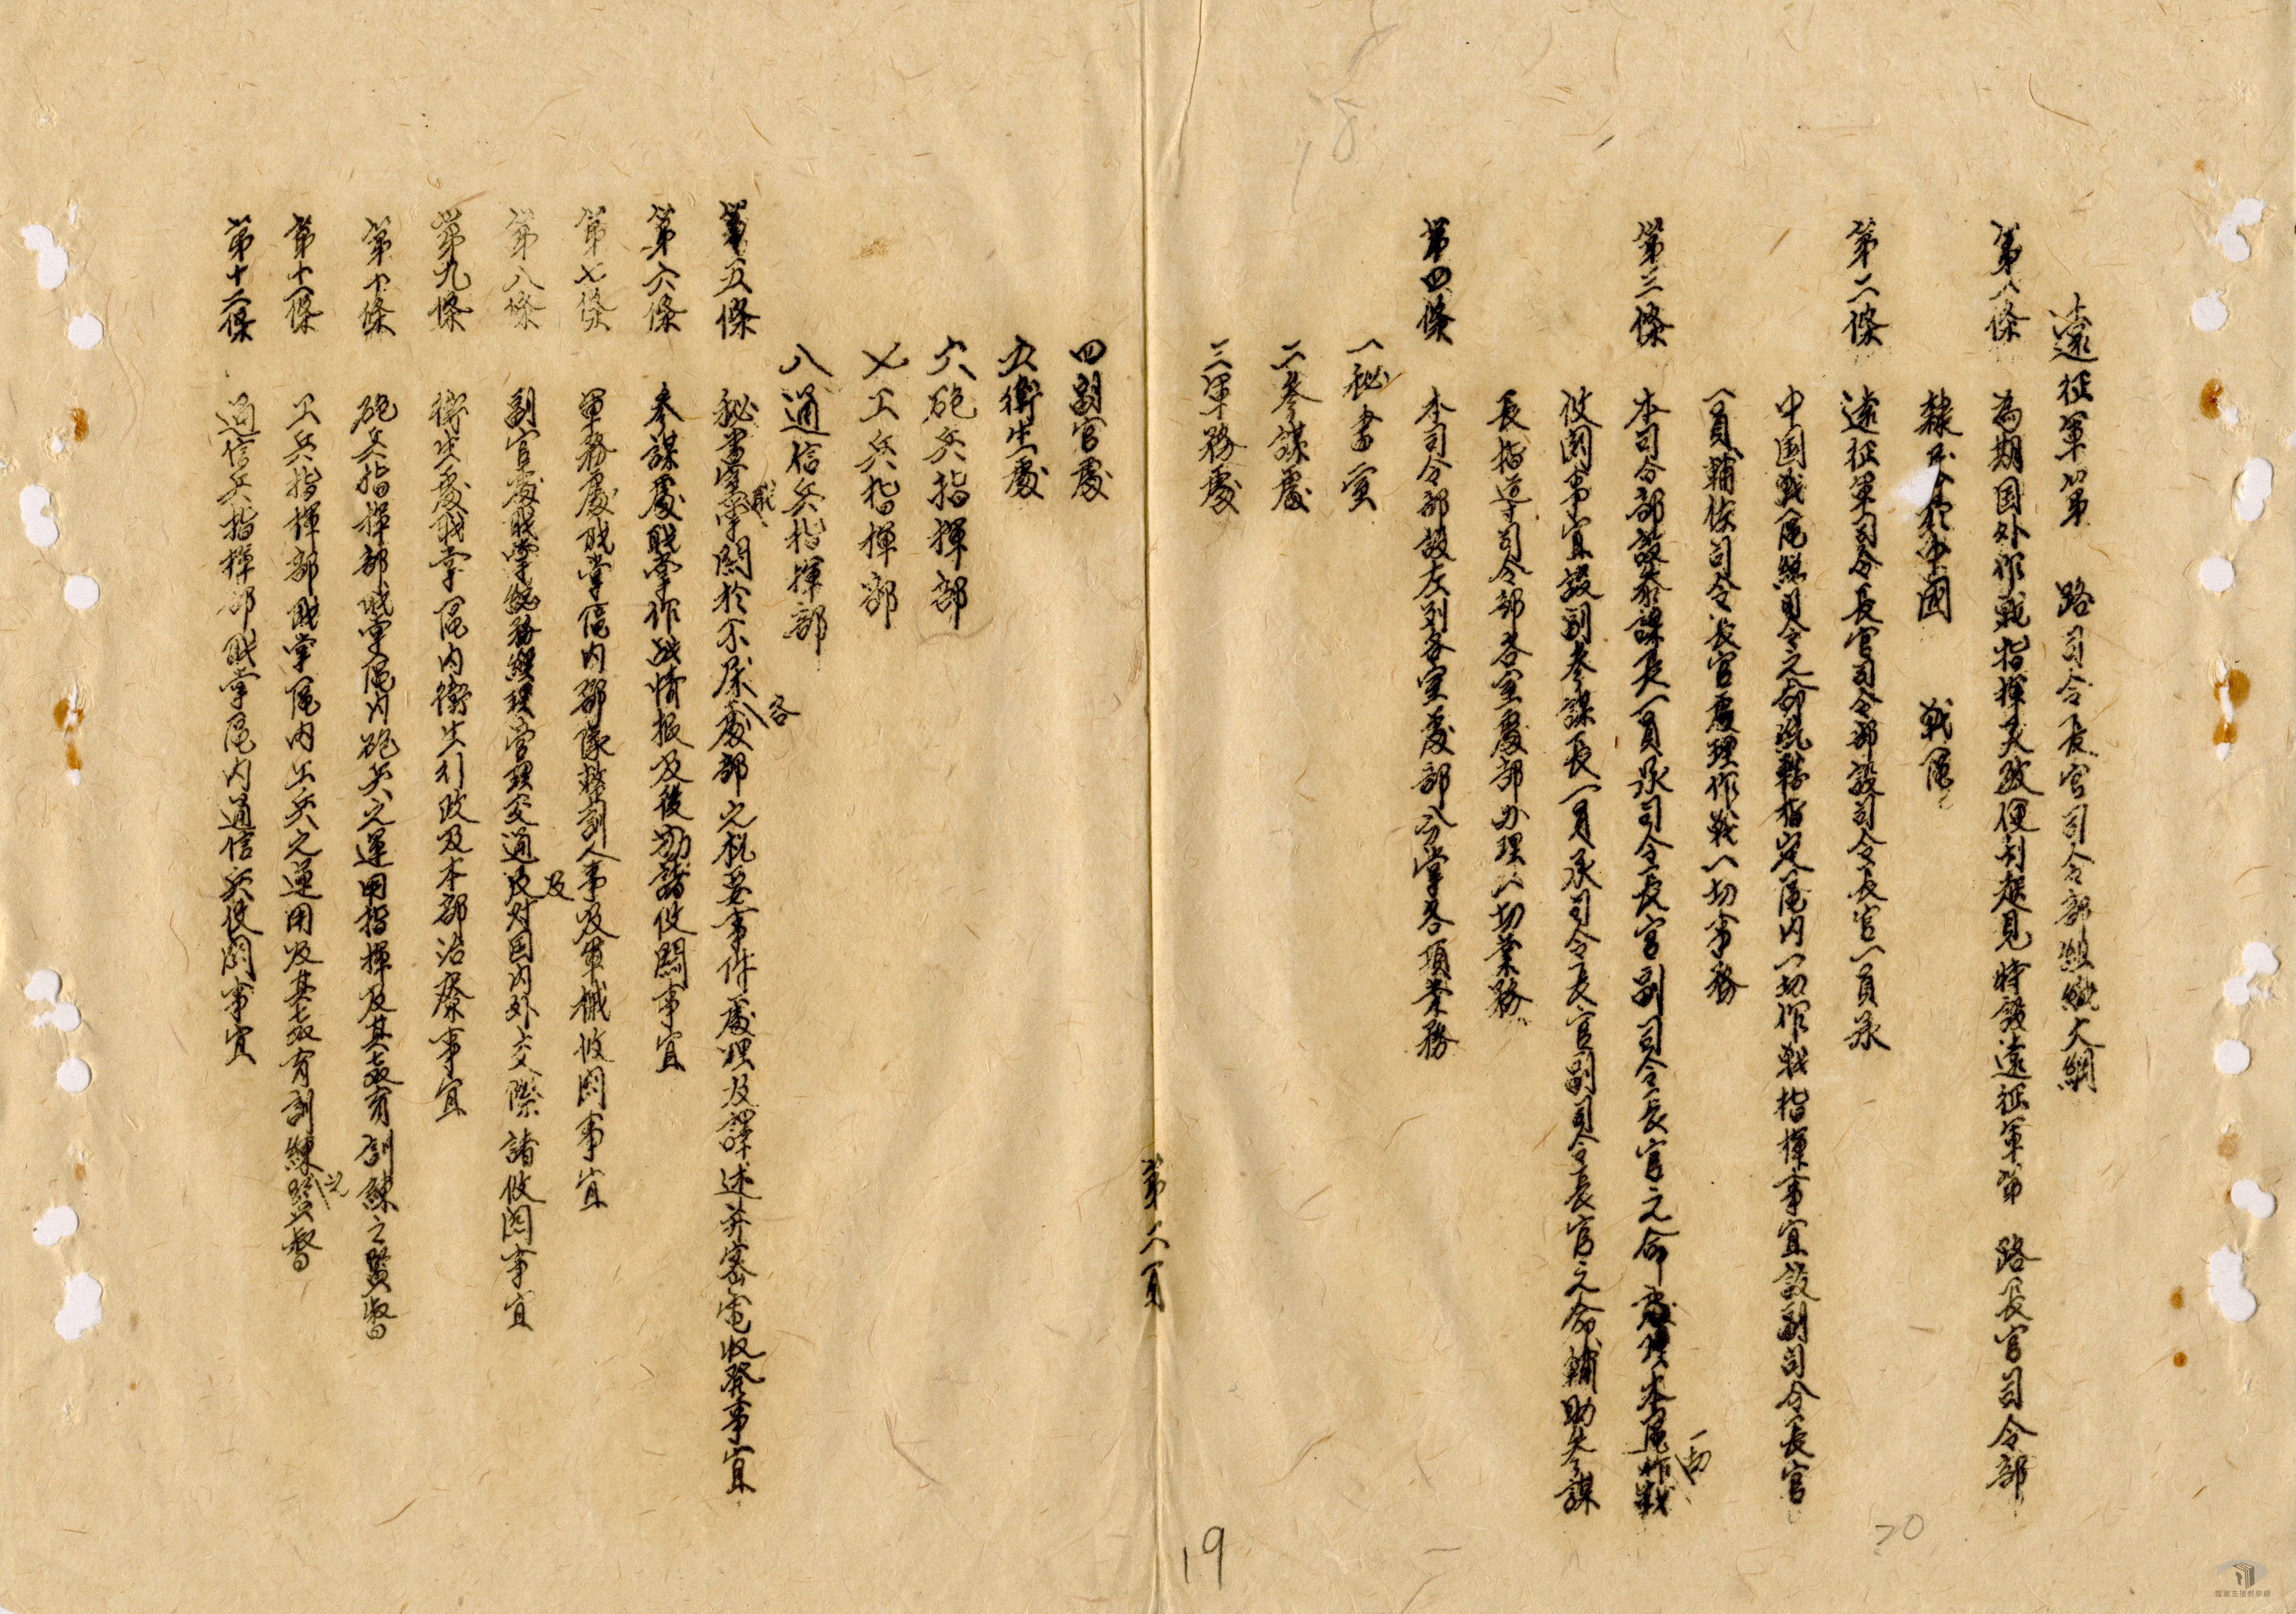 遠征軍第　路司令長官司令部組織大綱
第一條　為期国外作戰指揮灵敏便利起見特設遠征軍第　路長官司令部
隸属於中國　戰區
第二條　遠征軍司令長官司令部設司令長官一員承
中国戰區總司令之命統轄指定區內一切作戰指揮事宜設副司令長官
一員輔佐司令長官處理作戰一切事務
第三條　本司令部設參謀長一員承司令長官副司令長官之命處理本區作戰一切
攸関事宜設副參謀長一員承司令長官副司令長官之命輔助參謀
長指导司令部各室處部办理一切業務
第四條　本司令部設左列各室處部分掌各項業務
一秘書室
二參謀處
三軍務處
第一頁
四副官處
五衛生處
六砲兵指揮部
七工兵指揮部
八通信兵指揮部
第五條　秘書室職掌関於不屬各處部之机要事件處理及譯述并密電收發事宜
第六條　參謀處職掌作战情报及後勤諸攸関事宜
第七條　軍務處職掌區内部隊整訓人事及軍械攸関事宜
第八條　副官處職掌總務經理管理交通及对国内外交際諸攸関事宜
第九條　衛生處職掌區内衛生行政及本部治療事宜
第十條　砲兵指揮部職掌區内砲兵之運用指揮及其教育訓練之監督
第十一條　工兵指揮部職掌區内工兵之運用及其教育訓練之監督
第十二條　通信兵指揮部職掌區内通信兵攸関事宜
18
19
20
檔案支援教學網